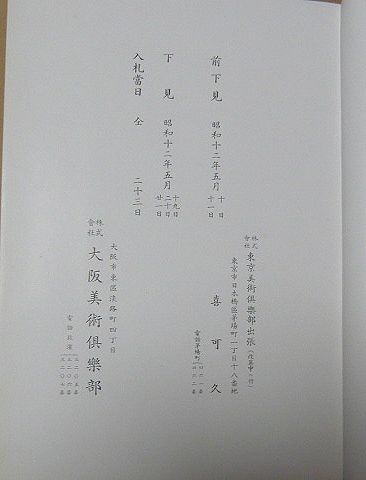 前下見 昭和十二年五月 十日 十一日
株式會社 東京美術倶樂部出張
東京市日本橋區茅場町一丁目十八番地
喜可久
電話茅場町
下見 昭和十二年五月 十九日 二十日 廿一日
入札當日 仝 二十三日
大阪市東區淡路町四丁目
株式會社 大阪美術倶樂部
電話北濱